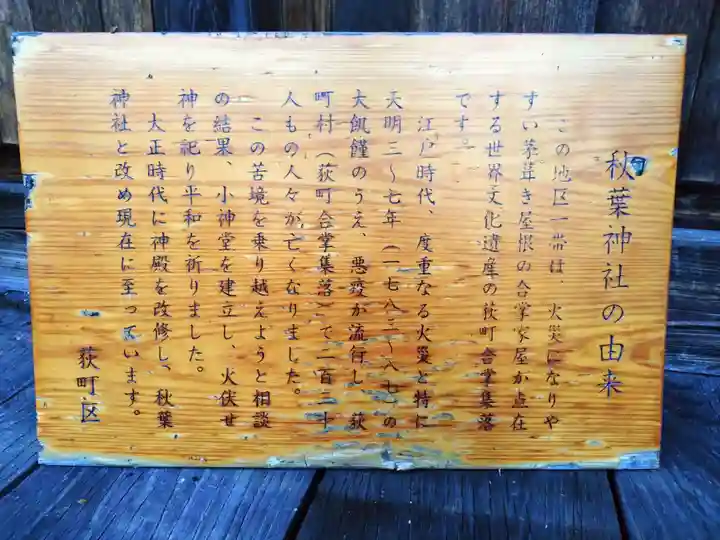 秋葉神社の由来
この地区一帯は、火災になりや
すい茅葺き屋根の合掌家屋が点在
する世界文化遺産の荻町合掌集落
です。
江戸時代、度重なる火災と特に
天明三〜七年(一七八三〜八七)の
大飢饉のうえ、悪疫が流行し、荻
町村(荻町合掌集落)で二百二十
人もの人々が亡くなりました。
この苦境を乗り越えようと相談
の結果、小神堂を建立し、火伏せ
神を祀り平和を祈りました。
大正時代に神殿を改修し、秋葉
神社と改め現在に至っています。
荻町区